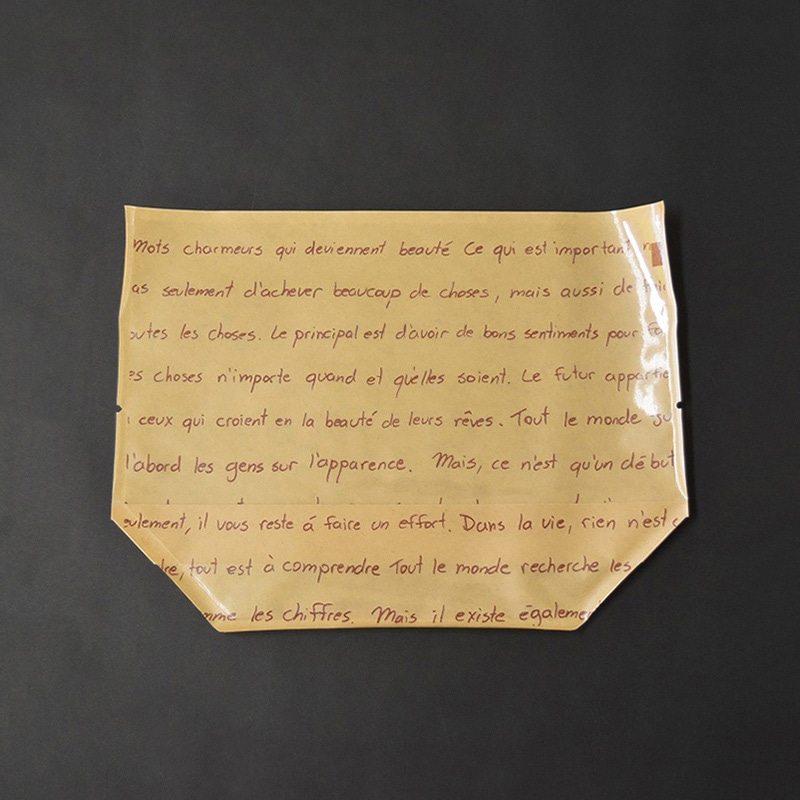 Mots charmeurs qui deviennent beauté Ce qui est important
as seulement d'achever beaucoup de choses, mais aussi de
outes les choses. Le principal est d'avoir de bons sentiments pour
es choses n'importe quand et qu'elles soient. Le futur appartie
ceux qui croient en la beauté de leurs rêves. Tout le monde
l'abord les gens sur l'apparence. Mais, ce n'est qu'un début
eulement, il vous reste á faire un effort. Dans la vie, rien n'est
dre, tout est à comprendre Tout le monde recherche les
mme les chiffres. Mais il existe égaleme